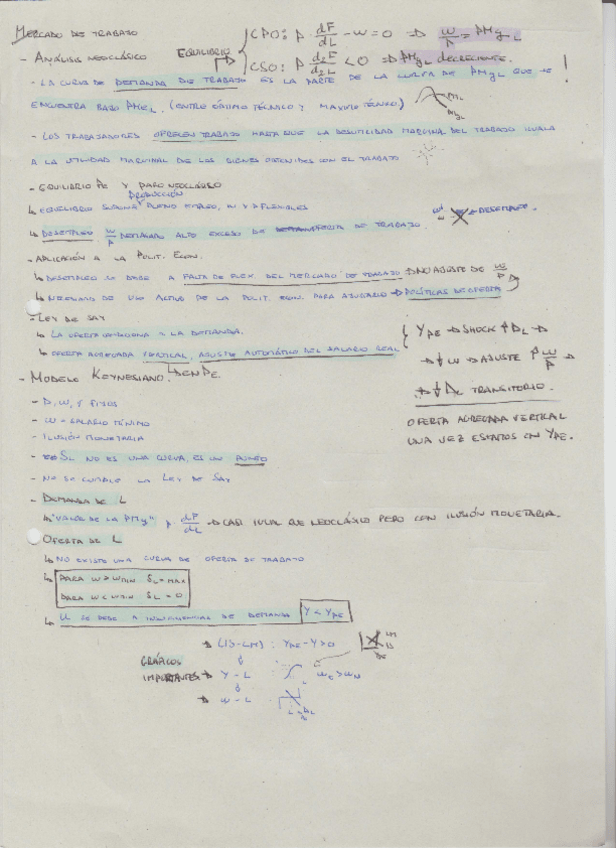 Mercado de trabajo
- Análisis neoclásico Equilibrio
CPO: P · dF/dL - w = 0 ⇒ w/P = PMgL
CSO: P · d2F/d2L < 0 ⇒ PMgL decreciente. !
- La curva de demanda de trabajo es la parte de la curva de PMgL que se
encuentra bajo PMeL. (entre óptimo técnico y máximo técnico)
PMeL
PMgL
- Los trabajadores ofrecen trabajo hasta que la desutilidad marginal del trabajo iguala
a la utilidad marginal de los bienes obtenidos con el trabajo
- Equilibrio y paro neoclásico
producción
↳ Equilibrio pleno empleo, w y P flexibles
↳ Desempleo w/P demasiado alto exceso de oferta de trabajo. → desempleo.
- Aplicación a la Polit. Econ.
↳ Desempleo se debe a falta de flex. del mercado de trabajo ⇒ no ajuste de w/P
↳ Necesidad de uso activo de la polit. econ. para ajustarlo ⇒ políticas de oferta
- Ley de Say
↳ La oferta la demanda.
↳ Oferta agregada vertical, ajuste automático del salario real
↳ en PE
YPE → shock ↑DL →
→ w → ajuste P w/P →
→ transitorio.
Oferta agregada vertical
una vez estamos en YPE.
- Modelo Keynesiano
- P, w, r fijos
- w = salario mínimo
- Ilusión monetaria
- SL no es una curva, es un punto
- No se cumple la Ley de Say
- Demanda de L
↳ "Valor de la PMg" P dF/dL → casi igual que neoclásico pero con ilusión monetaria.
- Oferta de L
↳ No existe una curva de oferta de trabajo
↳ Para w > wmin SL = max
Para w < wmin SL = 0
↳ U se debe a insuficiencias de demanda Y < YPE
→ (IS-LM) : YPE - Y > 0
LM
IS
Gráficos
importantes → Y - L
→ w - L